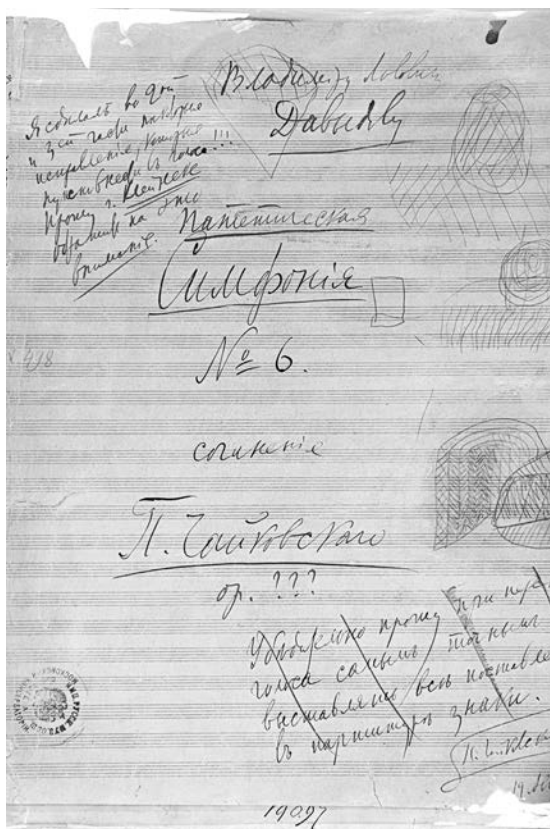 Владиміру Львовичу
Давыдову
Я сдѣлалъ во 2ой
и 3ей части нѣкоторыя
исправленія, которыя
нужно внести въ голоса!!!
Прошу г. Клейнеке
обратить на это
вниманіе.
Патетическая
Симфонія
№ 6.
сочиненіе
П. Чайковскаго
op. ???
Убѣдительно прошу при
голоса самымъ точнымъ
выставлять всѣ
въ партитурѣ знаки.
П. Чайковскій
19097